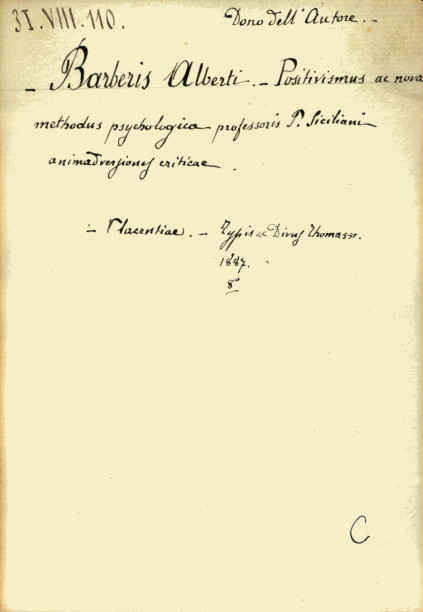 31.VIII.110.
Dono dell'Autore.-
- Barberis Alberti. - Positivismus ac nova
methodus psychologica professoris P. Siciliani
animadversiones criticae.
- Placentiae. - Typis "Divus Thomas".
1887.
8°
C